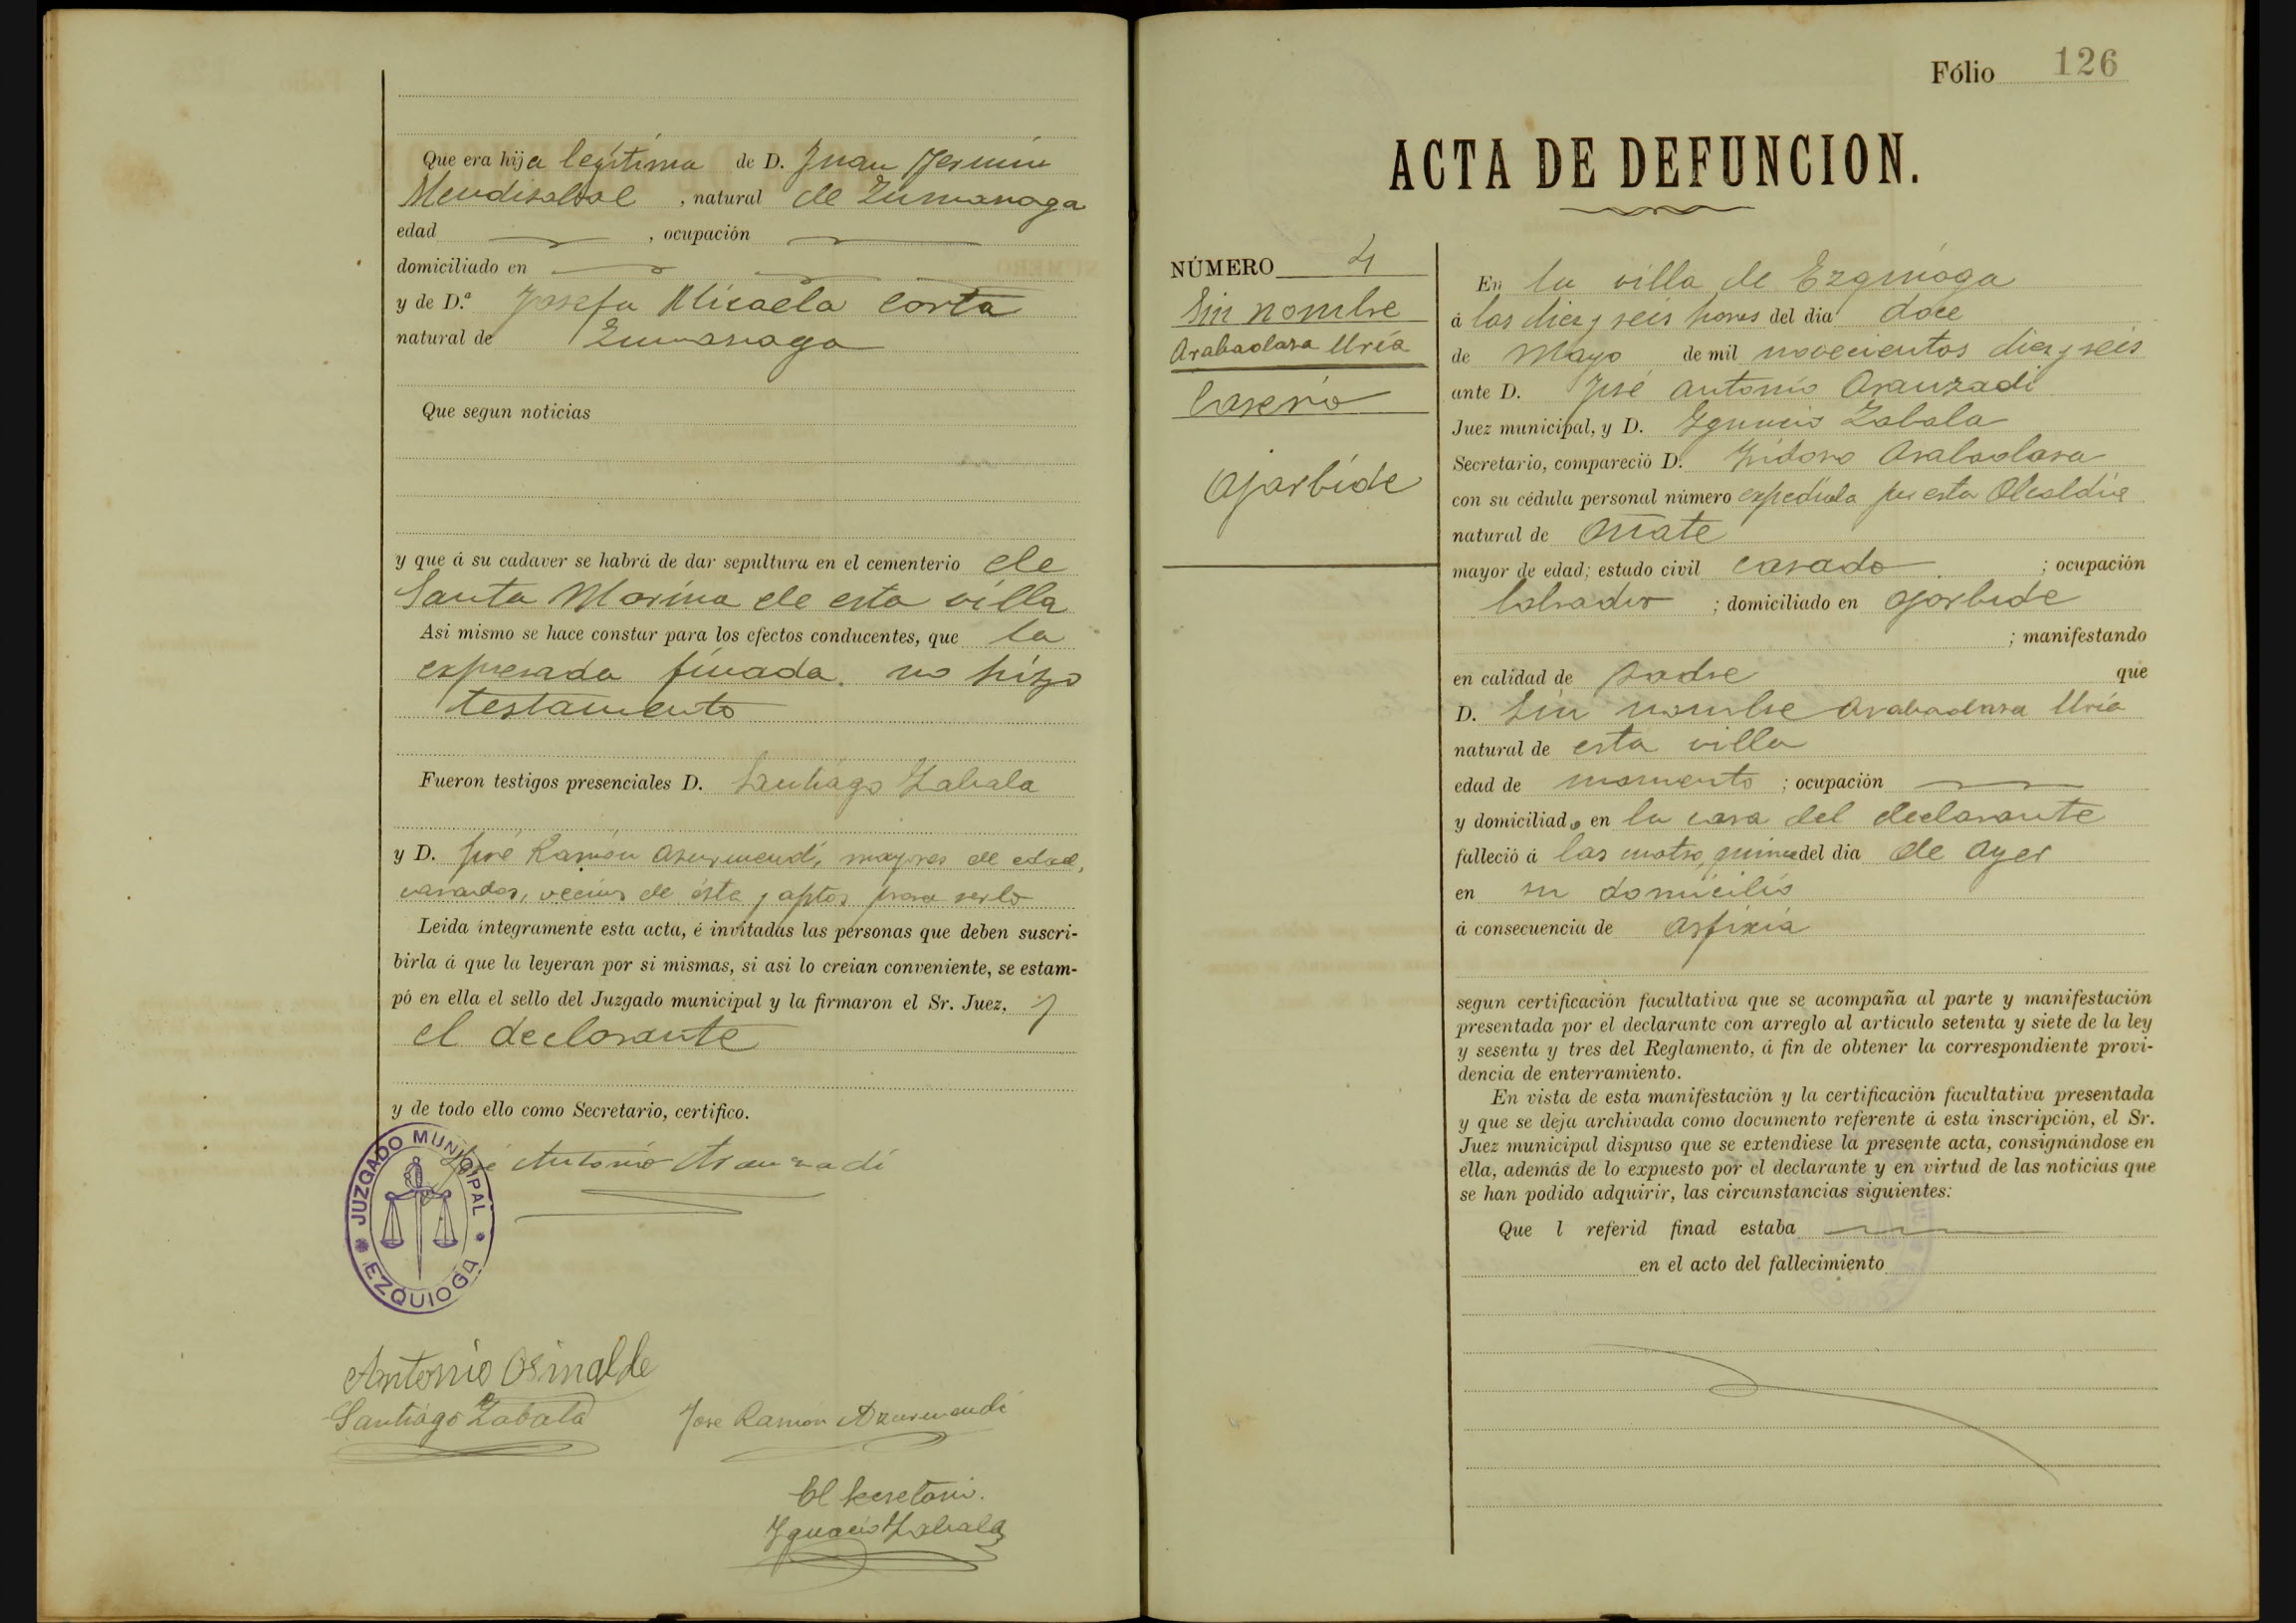 Que era hija legítima de D. Juan Fermín
Mendizabal, natural de Zumarraga
edad , ocupación
domiciliado en
y de D.ª Josefa Micaela Corta
natural de Zumarraga
Que segun noticias
y que á su cadaver se habrá de dar sepultura en el cementerio de
Santa Marina de esta villa
Asi mismo se hace constar para los efectos conducentes, que la
expresada finada no hizo
testamento
Fueron testigos presenciales D. Santiago Zabala
y D. José Ramón Azurmendi, mayores de edad,
casados, vecinos de ésta y aptos para serlo
Leida íntegramente esta acta, é invitadas las personas que deben suscri-
birla á que la leyeran por si mismas, si asi lo creian conveniente, se estam-
pó en ella el sello del Juzgado municipal y la firmaron el Sr. Juez, y
el declarante
y de todo ello como Secretario, certifico.
José Antonio Aranzadi
JUZGADO MUNICIPAL
EZQUIOGA
Antonio Osinalde
Santiago Zabala José Ramón Azurmendi
El Secretario.
Ygnacio Zabala
Fólio 126
ACTA DE DEFUNCION.
NÚMERO 4
Sin nombre
Arabaolaza Uría
Caserío
Ojarbide
En la villa de Ezquioga
á las diez y seis horas del dia doce
de Mayo de mil novecientos diez y seis
ante D. José Antonio Aranzadi
Juez municipal, y D. Ygnacio Zabala
Secretario, compareció D. Ysidoro Arabaolaza
con su cédula personal número expedida por esta Alcaldía
natural de Oñate
mayor de edad; estado civil casado ; ocupación
labrador ; domiciliado en Ojarbide
; manifestando
en calidad de padre que
D. Sin nombre Arabaolaza Uría
natural de esta villa
edad de momento ; ocupación
y domiciliado en la casa del declarante
falleció á las cuatro quince del dia de ayer
en su domicilio
á consecuencia de asfixia
segun certificación facultativa que se acompaña al parte y manifestación
presentada por el declarante con arreglo al articulo setenta y siete de la ley
y sesenta y tres del Reglamento, á fin de obtener la correspondiente provi-
dencia de enterramiento.
En vista de esta manifestación y la certificación facultativa presentada
y que se deja archivada como documento referente á esta inscripción, el Sr.
Juez municipal dispuso que se extendiese la presente acta, consignándose en
ella, además de lo expuesto por el declarante y en virtud de las noticias que
se han podido adquirir, las circunstancias siguientes:
Que l referid finad estaba
en el acto del fallecimiento